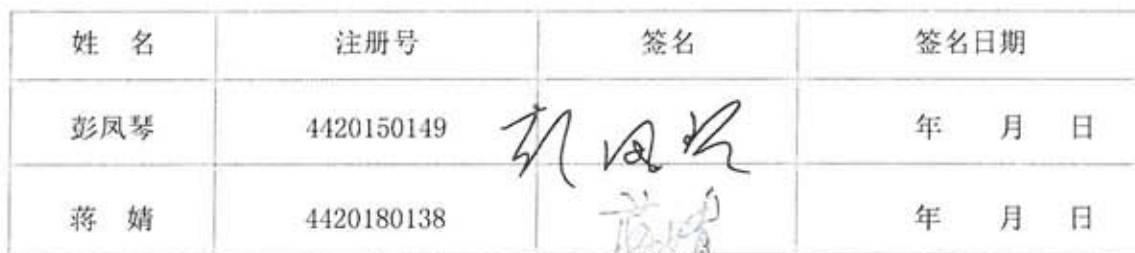 姓 名 注册号 签名 签名日期
彭凤琴 4420150149 彭凤琴 年 月 日
蒋 婧 4420180138 蒋婧 年 月 日